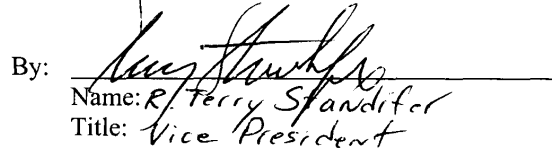 By:
Name: R. Terry Standifer
Title: Vice President